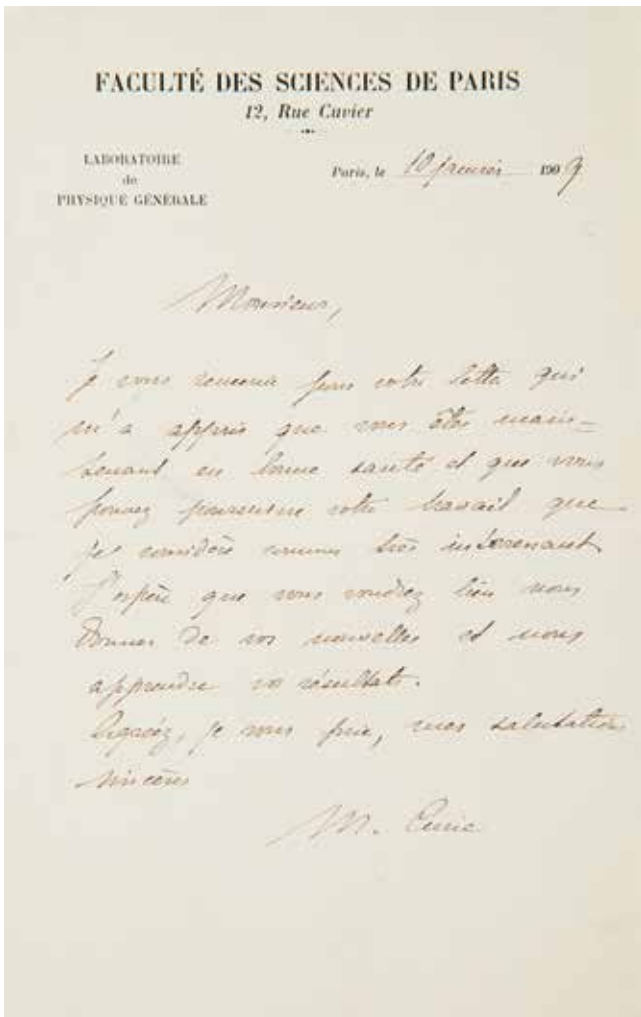 FACULTÉ DES SCIENCES DE PARIS
12, Rue Cuvier
LABORATOIRE
de
PHYSIQUE GÉNÉRALE
Paris, le 10 janvier 1909
Monsieur,
Je vous remercie pour votre lettre qui
m'a appris que vous êtes main=
tenant en bonne santé et que vous
pouvez poursuivre votre travail que
je considère comme très intéressant
J'espère que vous voudrez bien nous
donner de vos nouvelles et nous
apprendre vos résultats.
Agréez, je vous prie, mes salutations
sincères
M. Curie